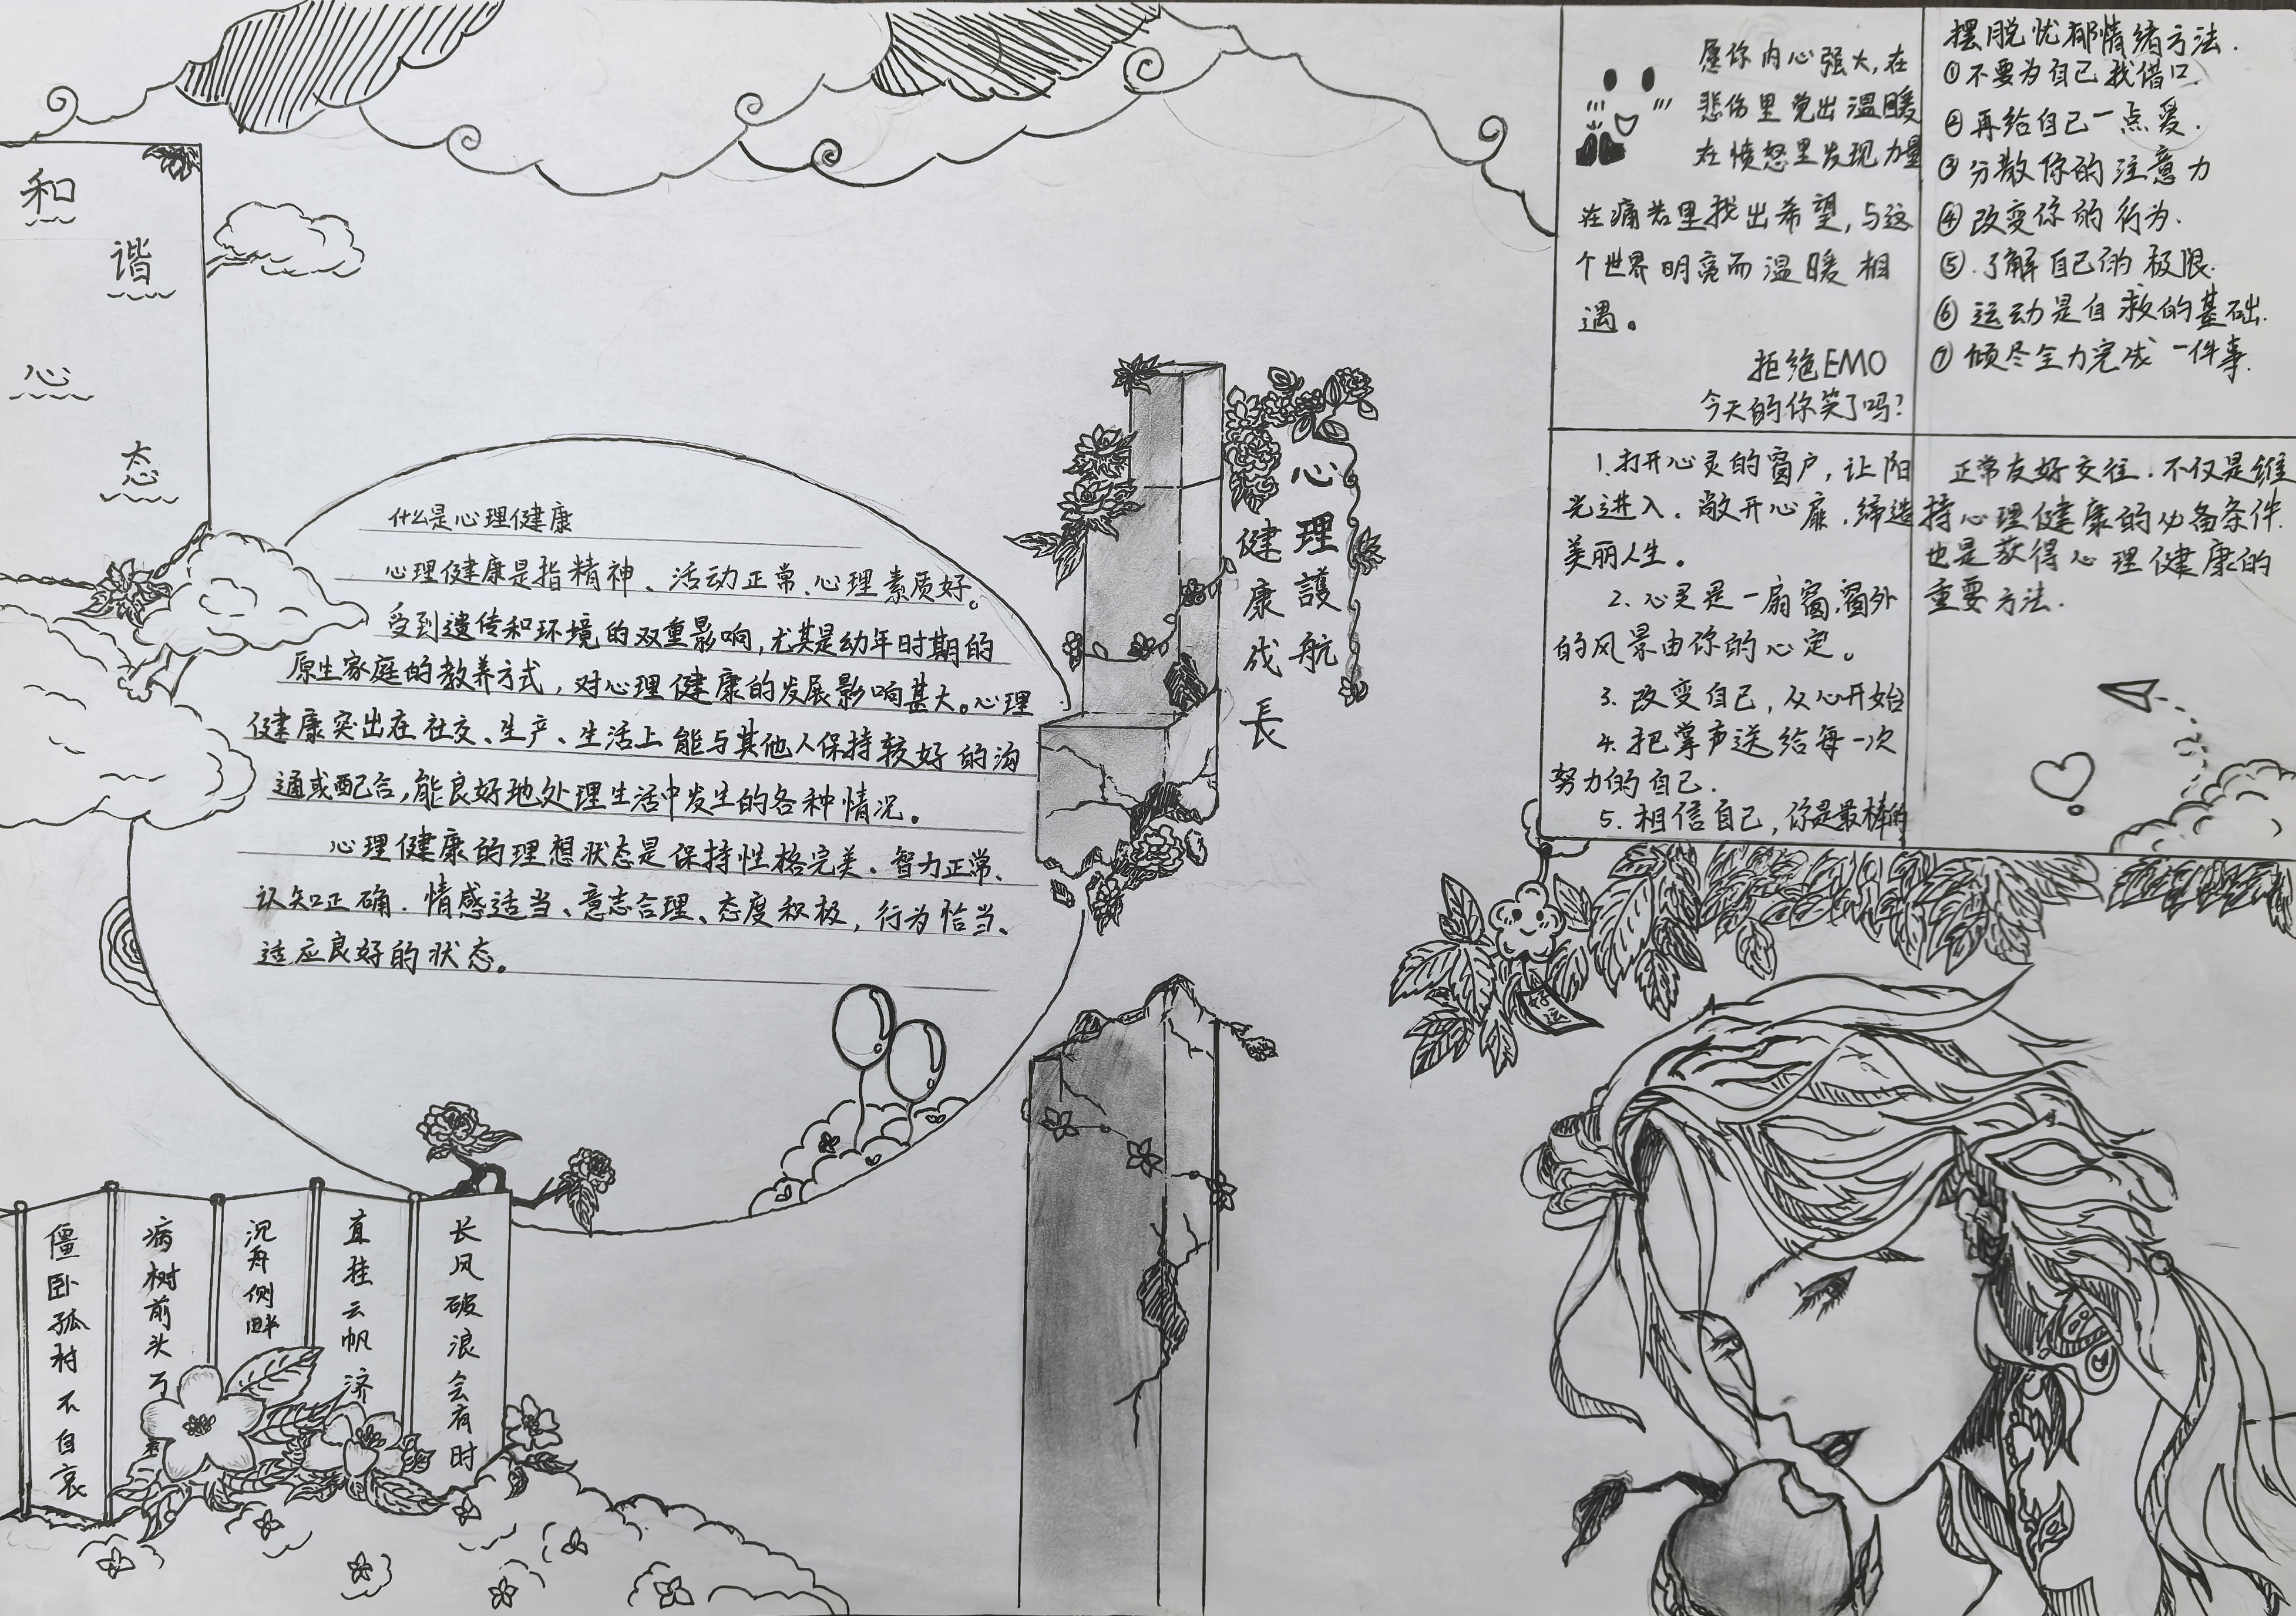 和
谐
心
态
什么是心理健康
心理健康是指精神、活动正常、心理素质好。
受到遗传和环境的双重影响,尤其是幼年时期的
原生家庭的教养方式,对心理健康的发展影响甚大。心理
健康突出在社交、生产、生活上能与其他人保持较好的沟
通或配合,能良好地处理生活中发生的各种情况。
心理健康的理想状态是保持性格完美、智力正常、
认知正确、情感适当、意志合理、态度积极,行为恰当、
适应良好的状态。
心理護航
健康成長
愿你内心强大,在
悲伤里觉出温暖
在愤怒里发现力量
在痛苦里找出希望,与这
个世界明亮而温暖相
遇。
拒绝EMO
今天的你笑了吗?
摆脱忧郁情绪方法.
①不要为自己找借口
②再给自己一点爱.
③分散你的注意力
④改变你的行为.
⑤.了解自己的极限.
⑥运动是自救的基础.
⑦倾尽全力完成一件事.
1.打开心灵的窗户,让阳
光进入.敞开心扉,缔造
美丽人生。
2.心灵是一扇窗,窗外
的风景由你的心定。
3.改变自己,从心开始
4.把掌声送给每一次
努力的自己.
5.相信自己,你是最棒的
正常友好交往.不仅是维
持心理健康的必备条件.
也是获得心理健康的
重要方法.
长风破浪会有时
直挂云帆济
沉舟侧畔
病树前头万
僵卧孤村不自哀